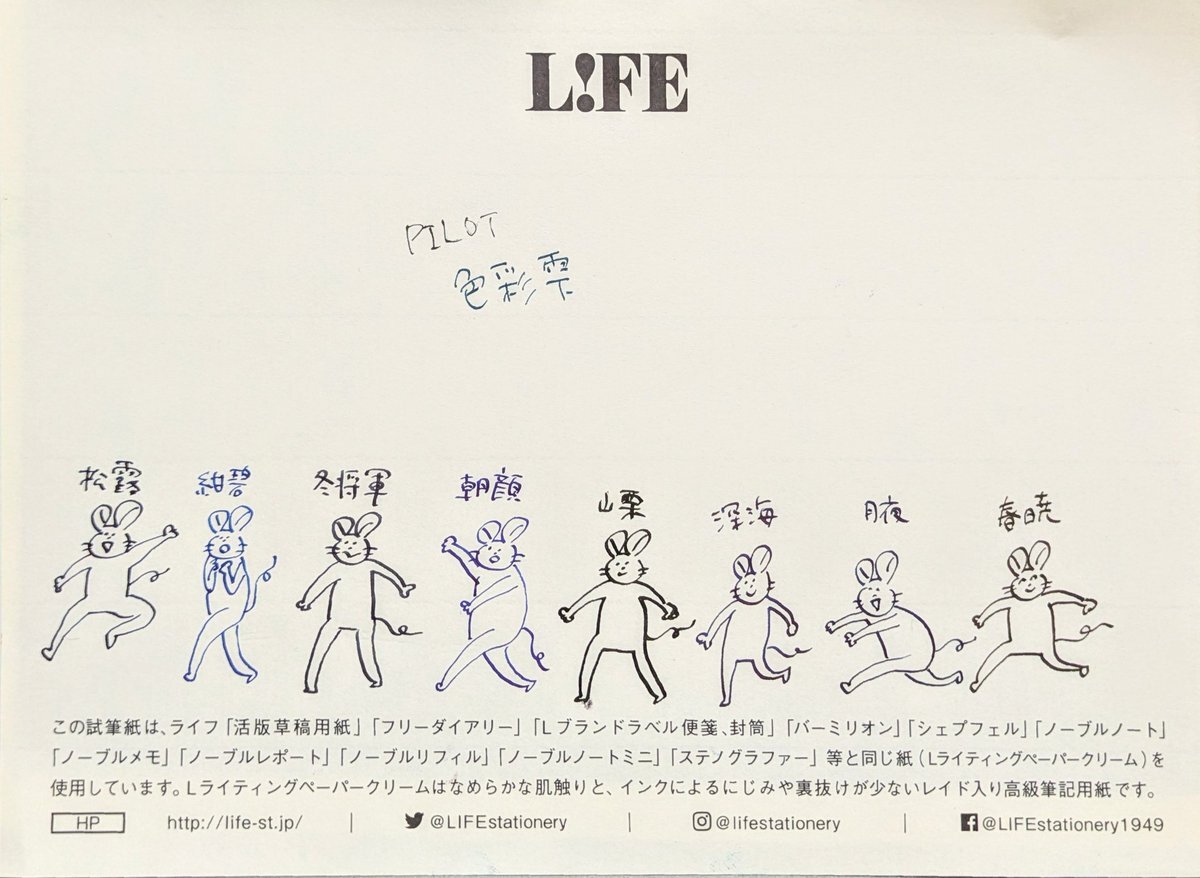 L!FE
PILOT
色彩雫
松露 紺碧 冬将軍 朝顔 山栗 深海 月夜 春暁
この試筆紙は、ライフ「活版草稿用紙」「フリーダイアリー」「Lブランドラベル便箋、封筒」「バーミリオン」「シェプフェル」「ノーブルノート」
「ノーブルメモ」「ノーブルレポート」「ノーブルリフィル」「ノーブルノートミニ」「ステノグラファー」等と同じ紙(Lライティングペーパークリーム)を
使用しています。Lライティングペーパークリームはなめらかな肌触りと、インクによるにじみや裏抜けが少ないレイド入り高級筆記用紙です。
HP http://life-st.jp/ | @LIFEstationery | @lifestationery | @LIFEstationery1949